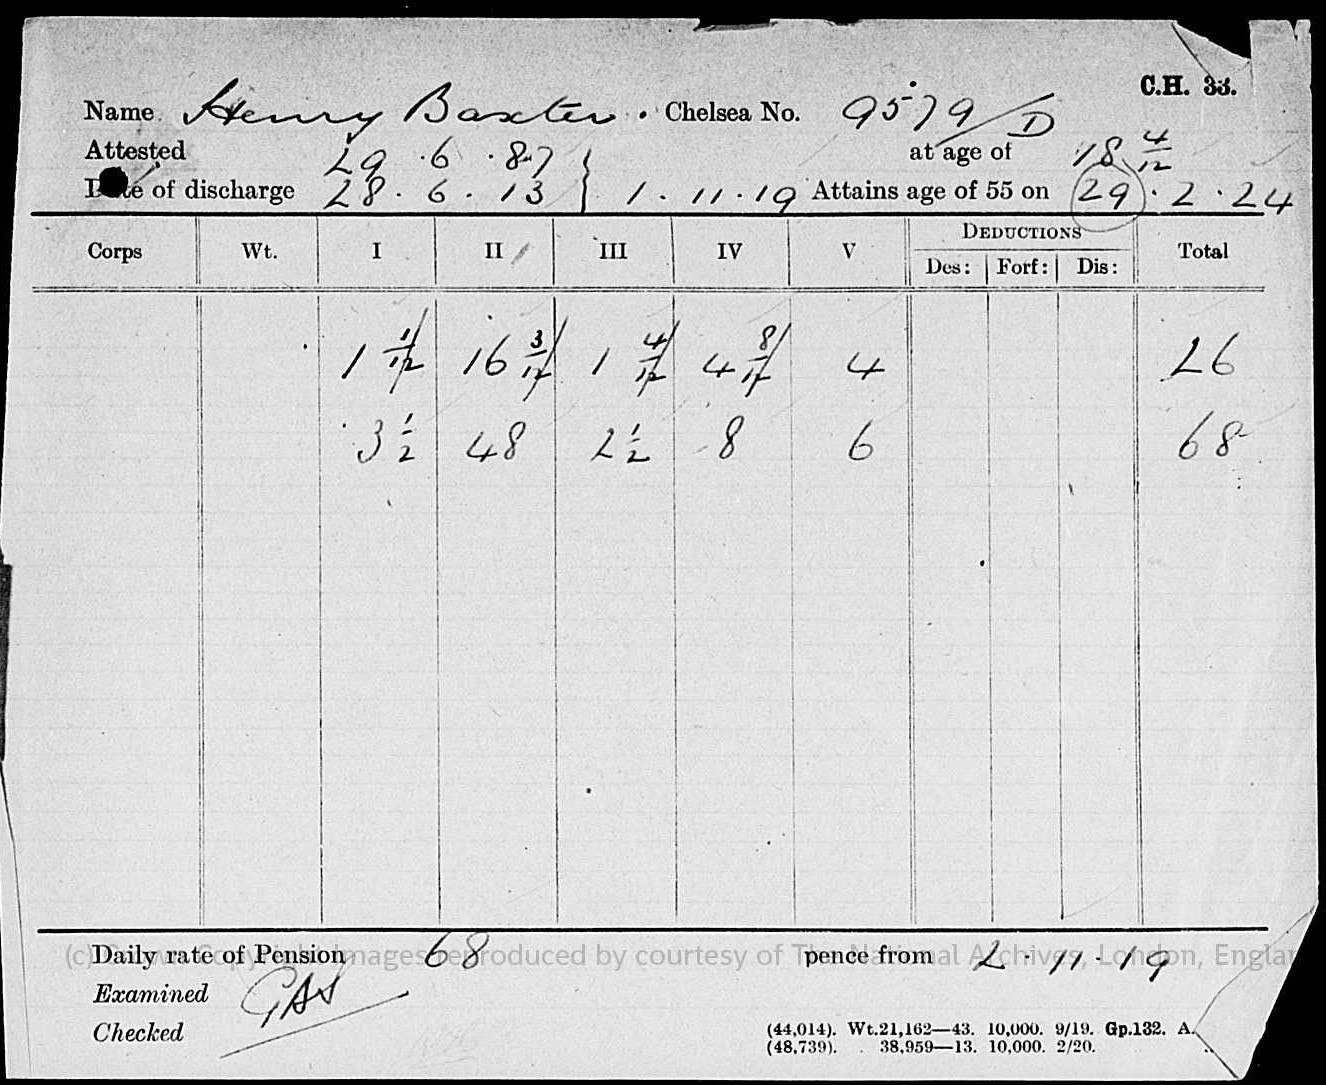 C.H. 33.
Name Henry Baxter. Chelsea No. 9579/D
Attested 29.6.87 } at age of 18 4/12
Date of discharge 28.6.13 } 1.11.19 Attains age of 55 on 29.2.24
Corps Wt. I II III IV V DEDUCTIONS Total
Des: Forf: Dis:
1 1/12 16 3/12 1 4/12 4 8/12 4 26
3 1/2 48 2 1/2 8 6 68
Daily rate of Pension 68 pence from 2.11.19
(c) Crown Copyright Images reproduced by courtesy of The National Archives, London, Englan
Examined GAS
Checked
(44,014). Wt.21,162—43. 10,000. 9/19. Gp.132. A.
(48,739). 38,959—13. 10,000. 2/20.